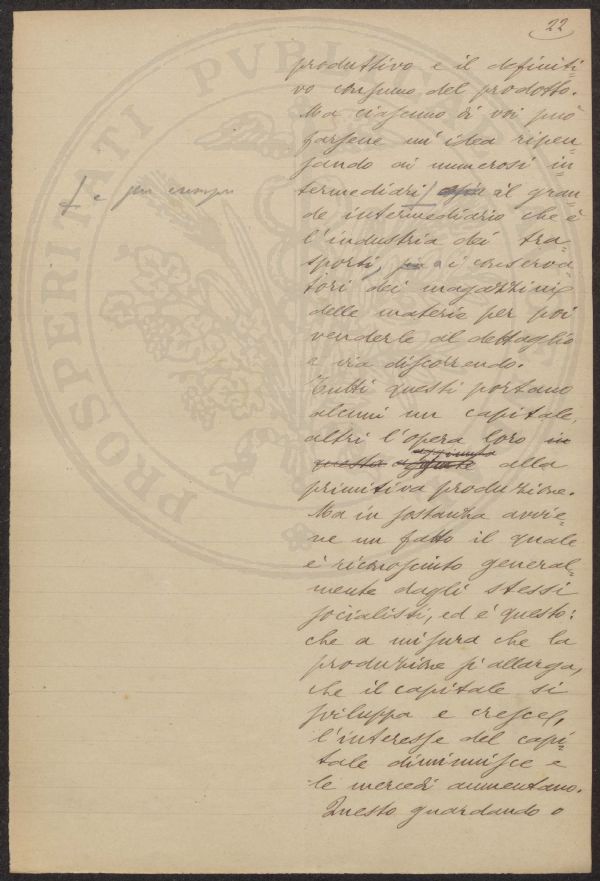 22
produttivo e il definiti=
vo consumo del prodotto.
Ma ciascuno di voi può
farsene un' idea ripen=
sando ai numerosi in=
termediari, al gran=
e per esempio
de intermediario che è
l'industria dei tra=
sporti, ai conserva=
tori dei magazzini
delle materie per poi
venderle al dettaglio
e via discorrendo.
Tutti questi portano
alcuni un capitale,
altri l'opera loro in
aggiunta
questa alla
primitiva produzione.
Ma in sostanza avvie=
ne un fatto il quale
è riconosciuto general=
mente dagli stessi
socialisti, ed è questo:
che a misura che la
produzione si allarga,
che il capitale si
sviluppa e cresce,
l'interesse del capi=
tale diminuisce e
le mercedi aumentano.
Questo guardando o
PROSPERITATI PVBLICA